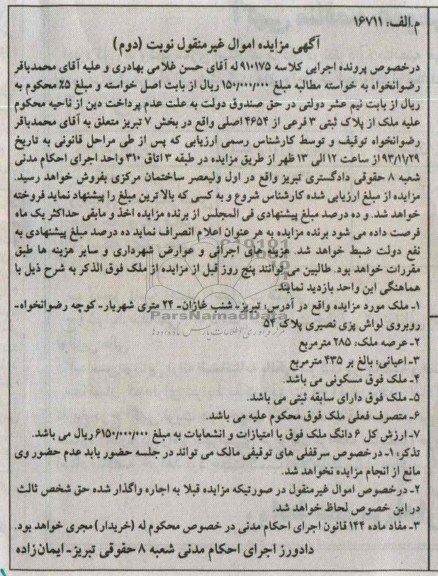 م.الف: ۱۶۷۱۱
آگهی مزایده اموال غیرمنقول نوبت (دوم)
درخصوص پرونده اجرایی کلاسه ۹۱۰۱۷۵ له آقای حسن غلامی بهادری و علیه آقای محمدباقر
رضوانخواه به خواسته مطالبه مبلغ ۱۵۰/۰۰۰/۰۰۰ ریال از بابت اصل خواسته و مبلغ ۵٪ محکوم به
ریال از بابت نیم عشر دولتی در حق صندوق دولت به علت عدم پرداخت دین از ناحیه محکوم
علیه ملک از پلاک ثبتی ۳ فرعی از ۴۶۵۴ اصلی واقع در بخش ۷ تبریز متعلق به آقای محمدباقر
رضوانخواه توقیف و توسط کارشناس رسمی ارزیابی که پس از طی مراحل قانونی به تاریخ
۹۳/۱۱/۲۹ از ساعت ۱۲ الی ۱۳ ظهر از طریق مزایده در طبقه ۳ اتاق ۳۱۰ واحد اجرای احکام مدنی
شعبه ۸ حقوقی دادگستری تبریز واقع در اول ولیعصر ساختمان مرکزی بفروش خواهد رسید.
مزایده از مبلغ ارزیابی شده کارشناس شروع و به کسی که بالاترین مبلغ را پیشنهاد نماید فروخته
خواهد شد. و ده درصد مبلغ پیشنهادی فی المجلس از برنده مزایده اخذ و مابقی حداکثر یک ماه
فرصت داده می شود برنده مزایده به هر عنوان اعلام انصراف نماید ده درصد مبلغ پیشنهادی به
نفع دولت ضبط خواهد شد. هزینه های اجرائی و عوارض شهرداری و سایر هزینه ها طبق
مقررات خواهد بود. طالبین می توانند پنج روز قبل از مزایده از ملک فوق الذکر به شرح ذیل با
هماهنگی این واحد بازدید نمایند.
۱- ملک مورد مزایده واقع در آدرس: تبریز- شنب غازان- ۲۴ متری شهریار- کوچه رضوانخواه-
روبروی لواش پزی نصیری پلاک ۵۴
۲- عرصه ملک: ۲۸۵ مترمربع
۳- اعیانی: بالغ بر ۴۳۵ مترمربع
۴- ملک فوق مسکونی می باشد.
۵- ملک فوق دارای سابقه ثبتی می باشد.
۶- متصرف فعلی ملک فوق محکوم علیه می باشد.
۷- ارزش کل ۶ دانگ ملک فوق با امتیازات و انشعابات به مبلغ ۶۱۵۰/۰۰۰/۰۰۰ ریال می باشد.
تذکر: ۱- درخصوص سرقفلی های توقیفی مالک می تواند در جلسه حضور یابد عدم حضور وی
مانع از انجام مزایده نخواهد شد.
۲- درخصوص اموال غیرمنقول در صورتیکه مزایده قبلا به اجاره واگذار شده حق شخص ثالث
در این خصوص لحاظ خواهد شد.
۳- مفاد ماده ۱۴۴ قانون اجرای احکام مدنی در خصوص محکوم له (خریدار) مجری خواهد بود.
دادورز اجرای احکام مدنی شعبه ۸ حقوقی تبریز- ایمان‌زاده
ParsNamadData